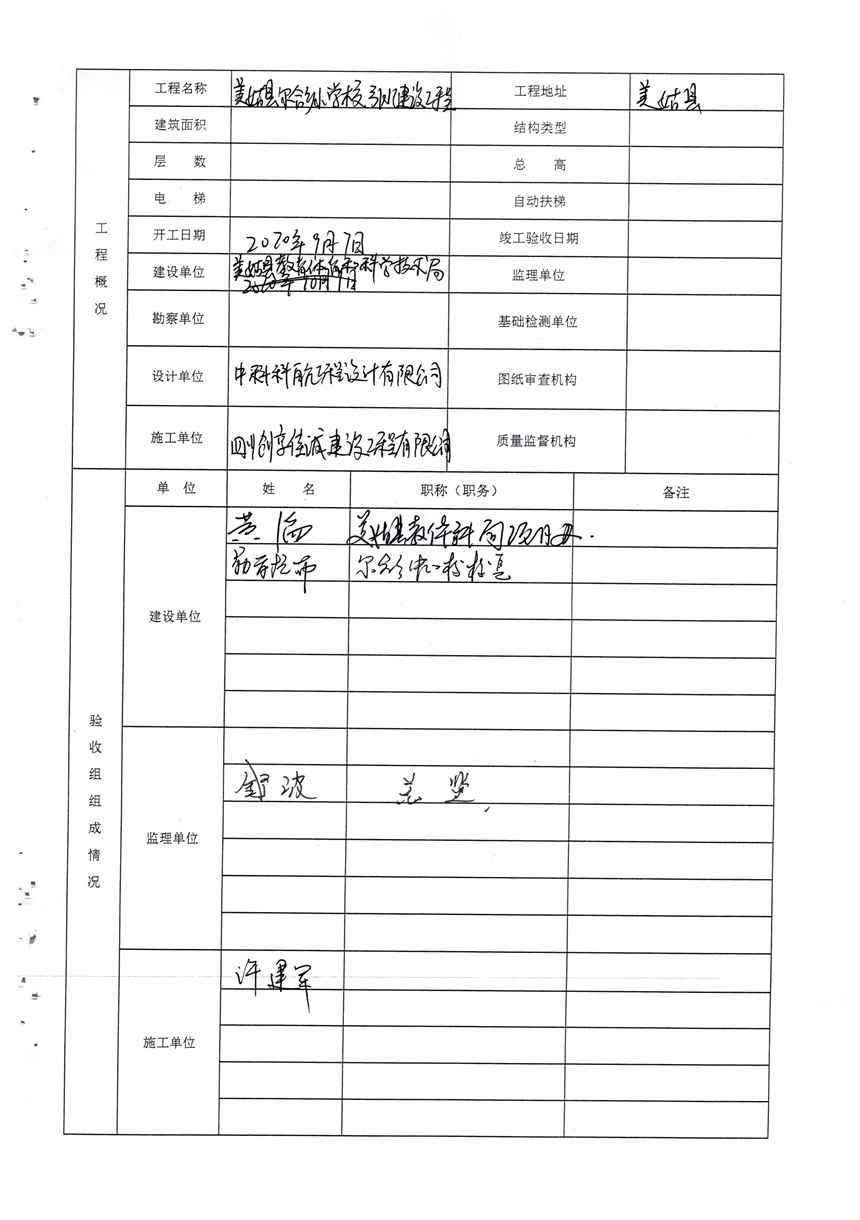 工程名称 美姑县尔合乡小学校引水建设工程 工程地址 美姑县
建筑面积 结构类型
层 数 总 高
电 梯 自动扶梯
开工日期 2020年9月7日 竣工验收日期
建设单位 美姑县教育体育和科学技术局 监理单位
2020年10月9日
勘察单位 基础检测单位
设计单位 中科科航工程设计有限公司 图纸审查机构
施工单位 四川创享佳诚建设工程有限公司 质量监督机构
工程概况
单 位 姓 名 职称(职务) 备注
建设单位
黄 美姑县教体科局项目办.
尔合乡中心校校长
监理单位
波 总监
施工单位
许建军
验收组组成情况